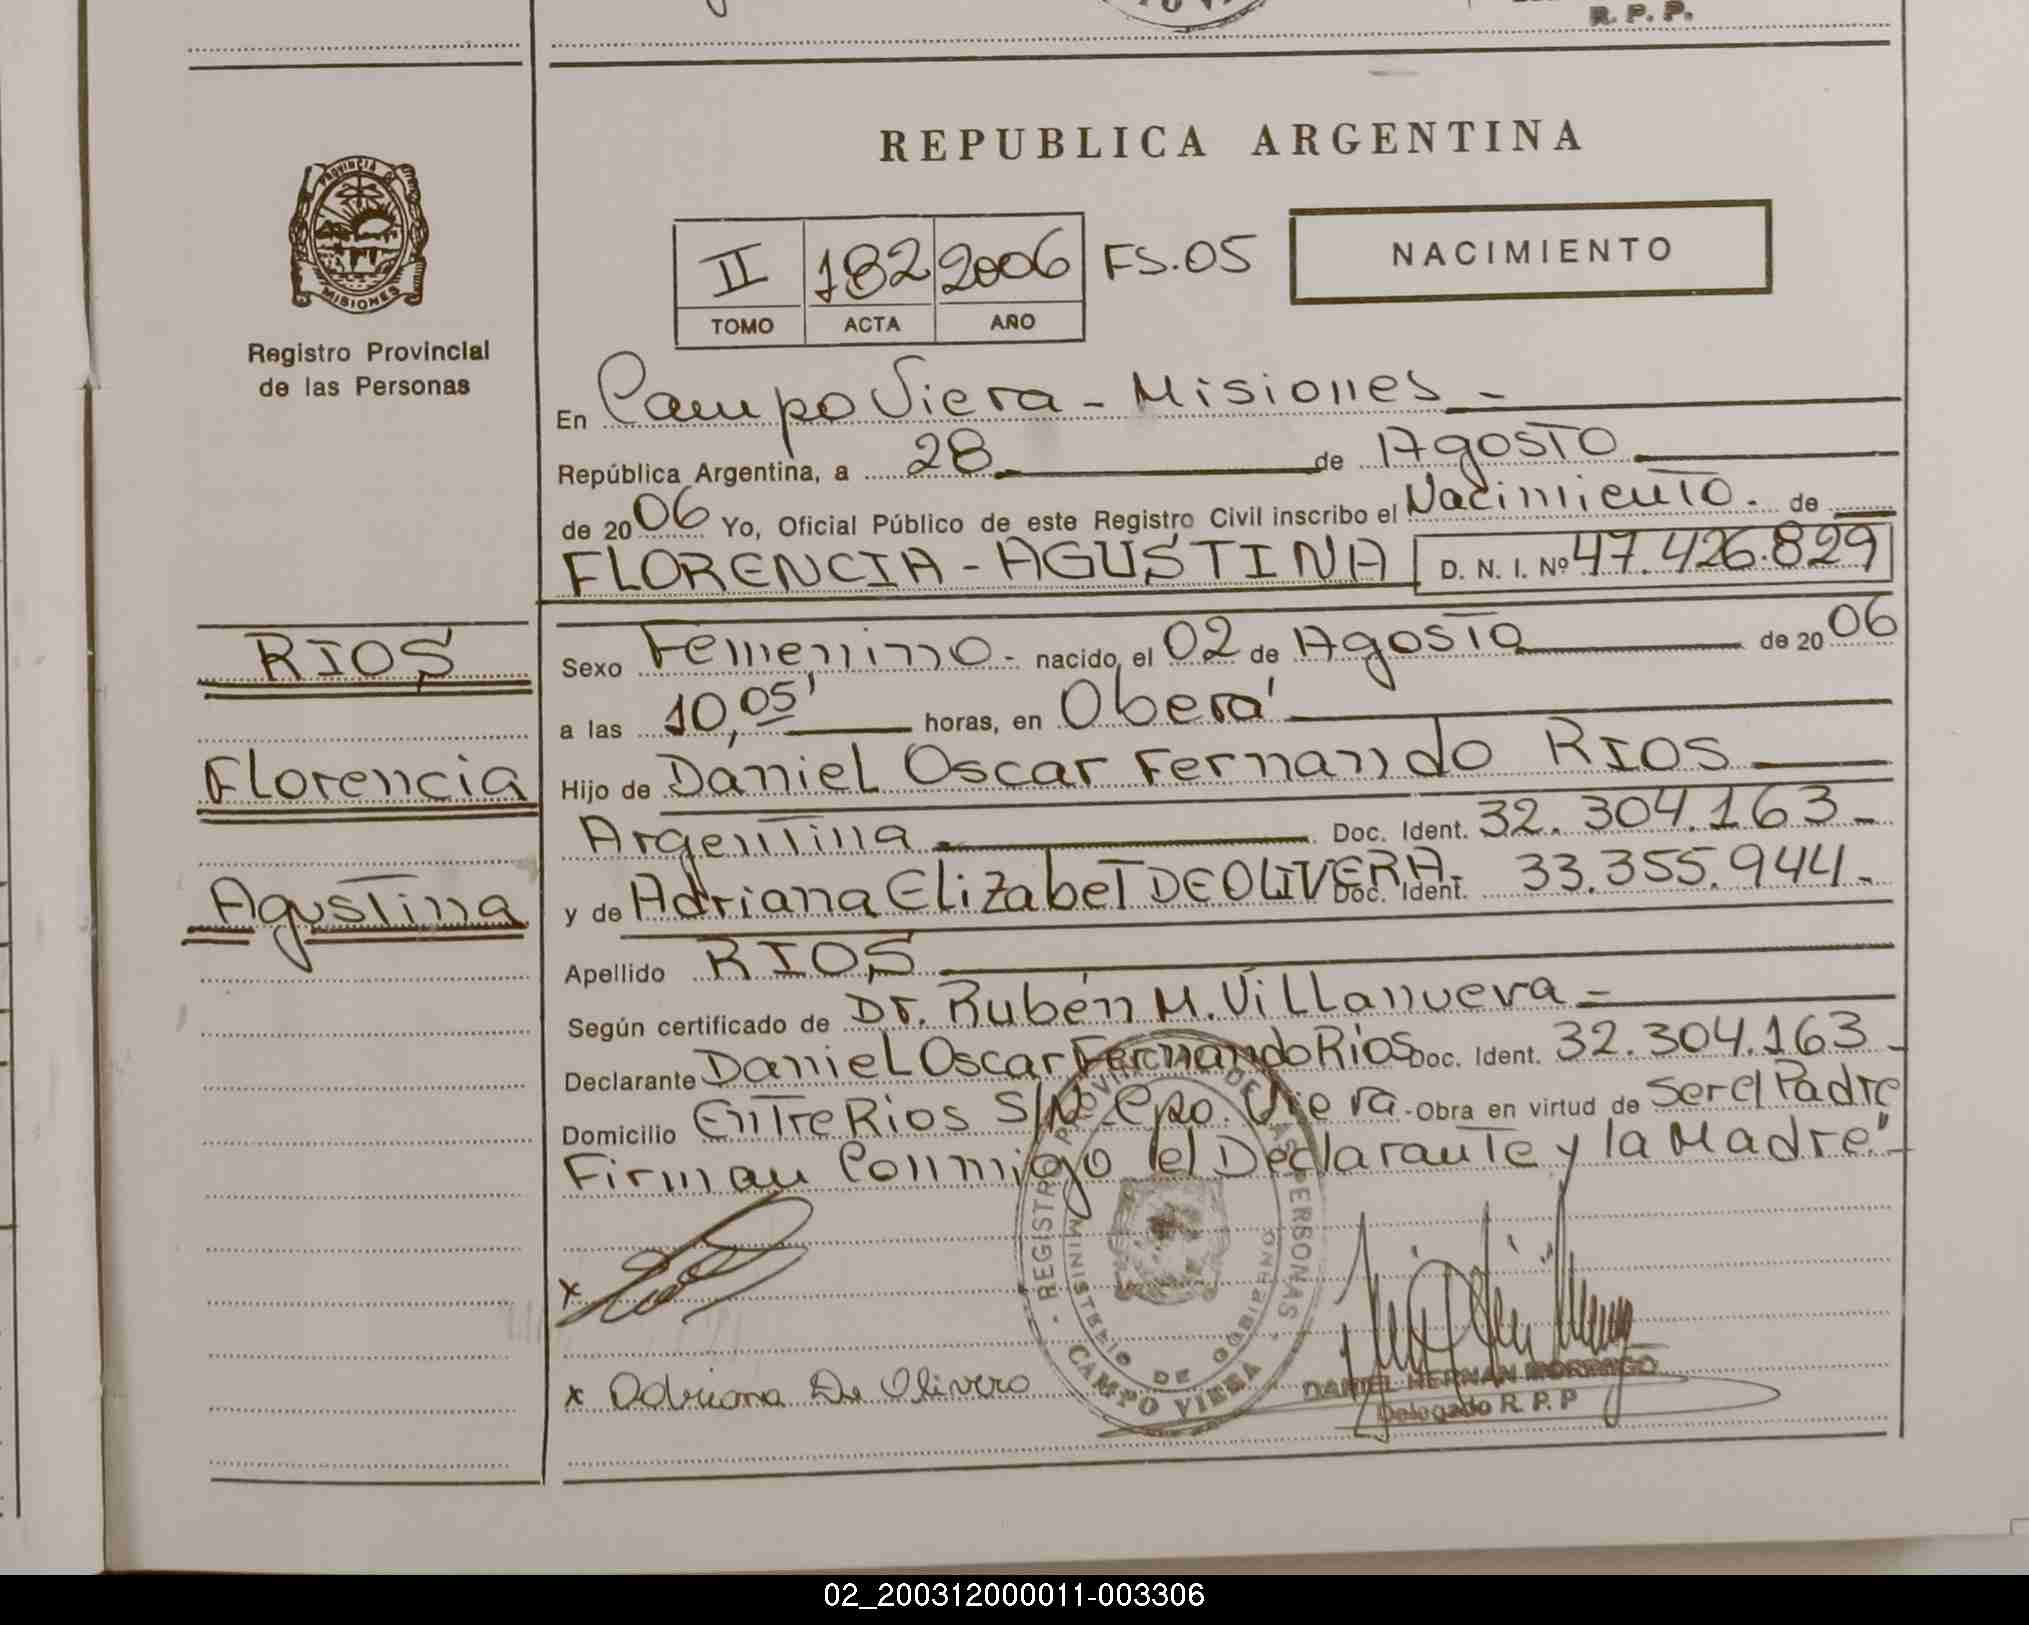 R. P. P.
REPUBLICA ARGENTINA
PROVINCIA DE
MISIONES
Registro Provincial
de las Personas
II 182 2006 FS.05
TOMO ACTA AÑO
NACIMIENTO
En Campo Viera - Misiones -
República Argentina, a 28 de Agosto
de 2006 Yo, Oficial Público de este Registro Civil inscribo el Nacimiento. de
FLORENCIA - AGUSTINA D. N. I. Nº 47.426.829
RIOS
Florencia
Agustina
Sexo Femenino - nacido el 02 de Agosto de 2006
a las 10,05' horas, en Oberá
Hijo de Daniel Oscar Fernando RIOS
Argentina Doc. Ident. 32.304.163-
y de Adriana Elizabet DE OLIVERA- Doc. Ident. 33.355.944-
Apellido RIOS
Según certificado de Dr. Rubén M. Villanueva -
Declarante Daniel Oscar Fernando Rios Doc. Ident. 32.304.163-
Domicilio Entre Rios S/Nº Cpo. Viera - Obra en virtud de Ser el Padre
Firman Conmigo el Declarante y la Madre."-
REGISTRO PROVINCIAL DE LAS PERSONAS
MINISTERIO DE GOBIERNO
CAMPO VIERA
x
x Adriana De Olivera
DANIEL HERNAN
Delegado R. P. P
02_200312000011-003306